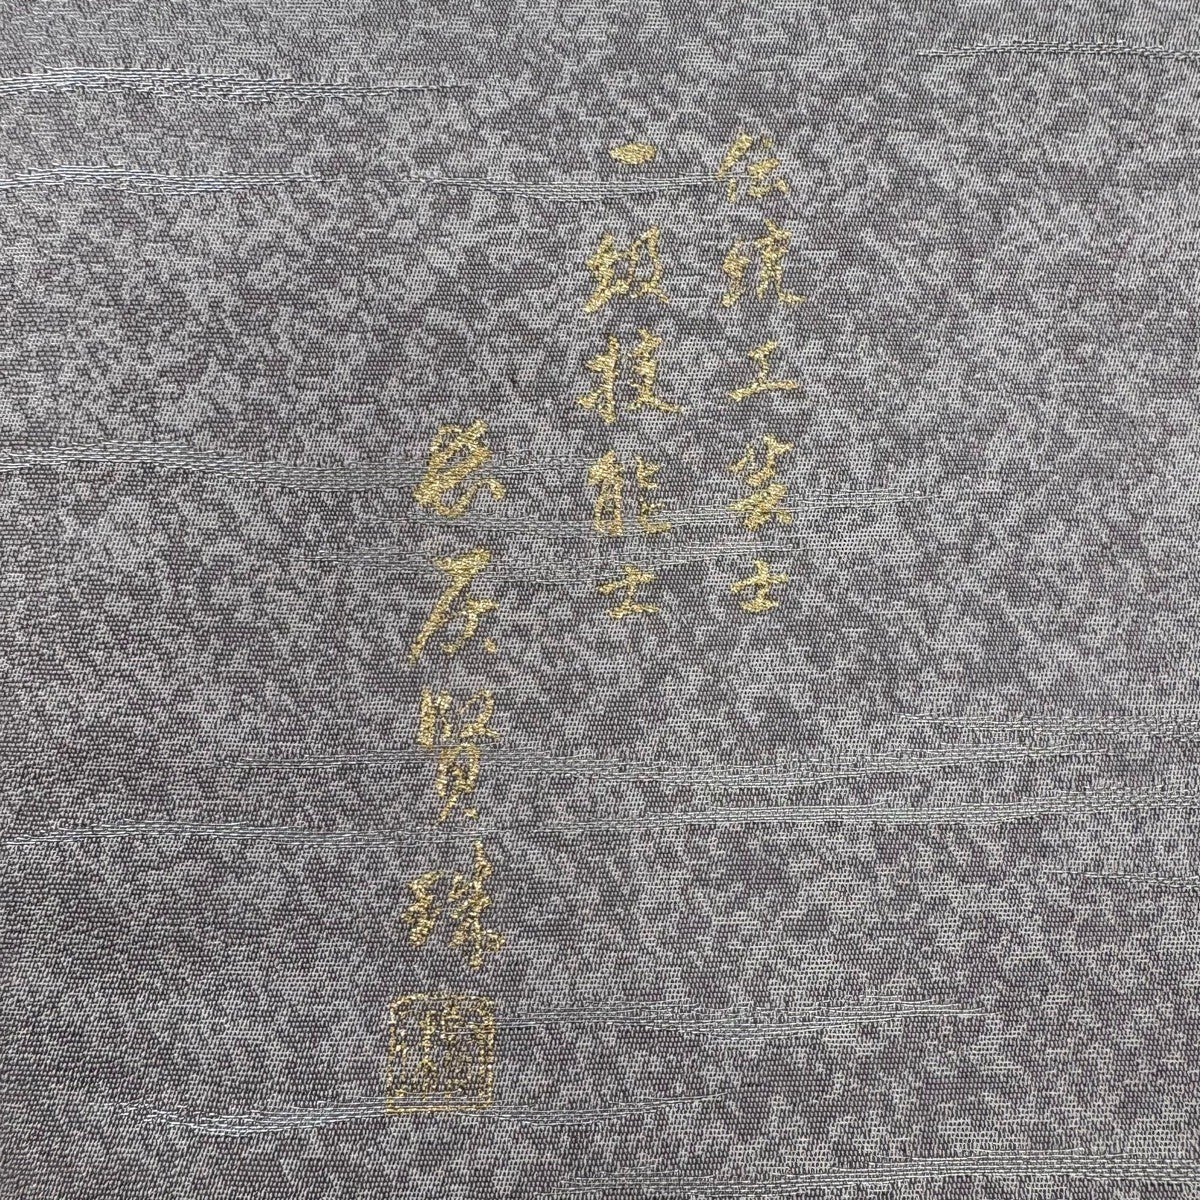 伝統工芸士
一級技能士
長原賢珠